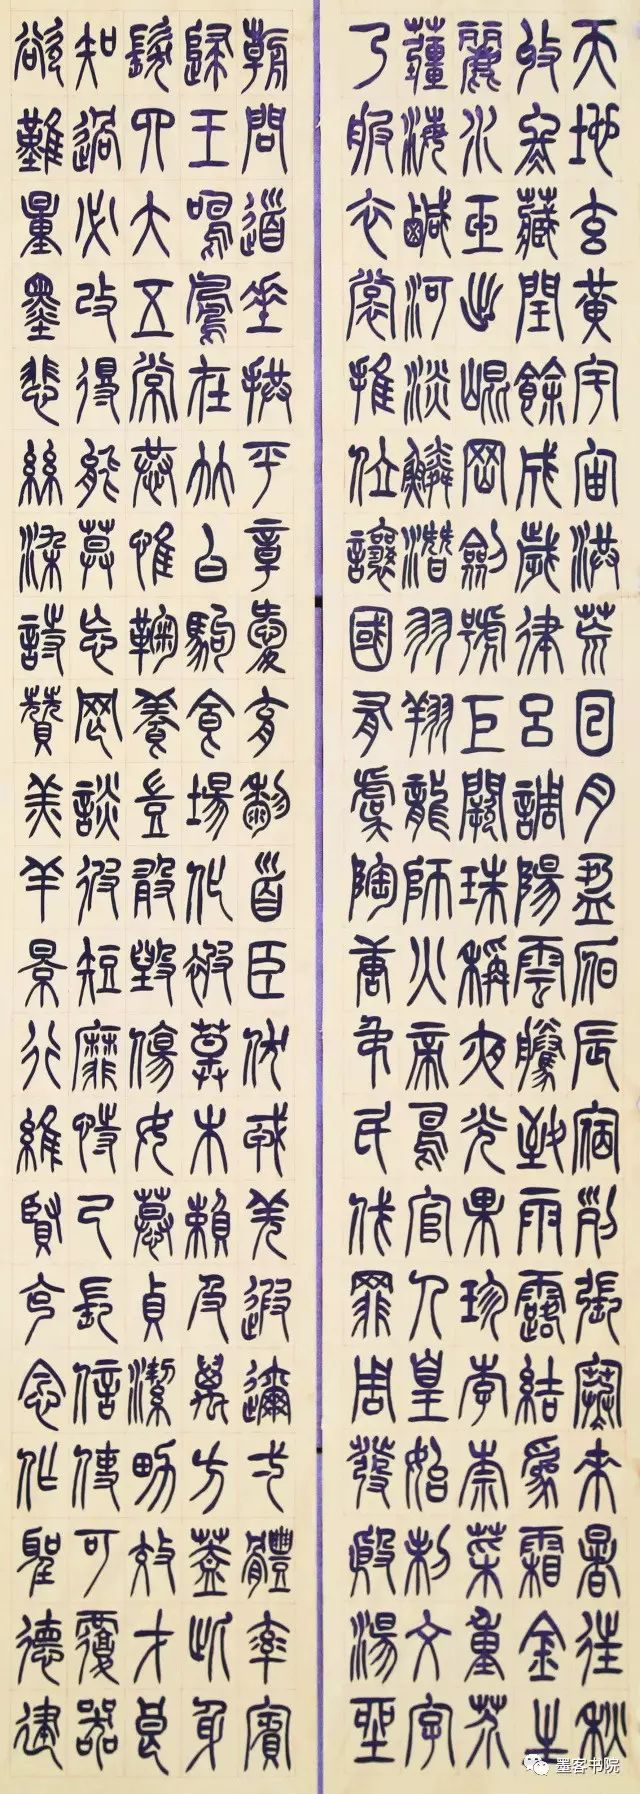 天地玄黃宇宙洪荒日月盈昃辰宿列張寒來暑往秋
收冬藏閏餘成歲律呂調陽雲騰致雨露結為霜金生
麗水玉出崐岡劍號巨闕珠稱夜光果珍李柰菜重芥
薑海鹹河淡鱗潛羽翔龍師火帝鳥官人皇始制文字
乃服衣裳推位讓國有虞陶唐弔民伐罪周發殷湯坐
朝問道垂拱平章愛育黎首臣伏戎羌遐邇壹體率賓
歸王鳴鳳在竹白駒食場化被草木賴及萬方蓋此身
髮四大五常恭惟鞠養豈敢毀傷女慕貞潔男效才良
知過必改得能莫忘罔談彼短靡恃己長信使可覆器
欲難量墨悲絲染詩贊羔羊景行維賢克念作聖德建
墨客书院